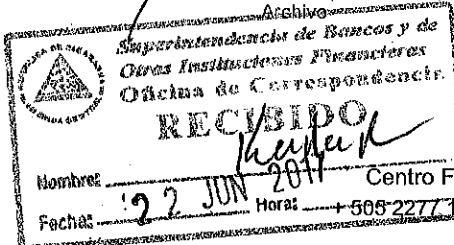 Archivo
Superintendencia de Bancos y de
Otras Instituciones Financieras
Oficina de Correspondencia.
RECIBIDO
Nombre:
22 JUN 2011 Centro F
Fecha: Hora: +505 2277 1